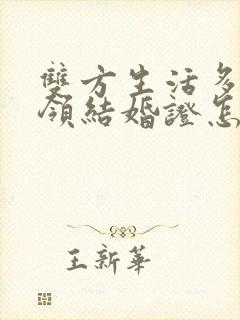 雙方生活多
領結婚證怎
王新華